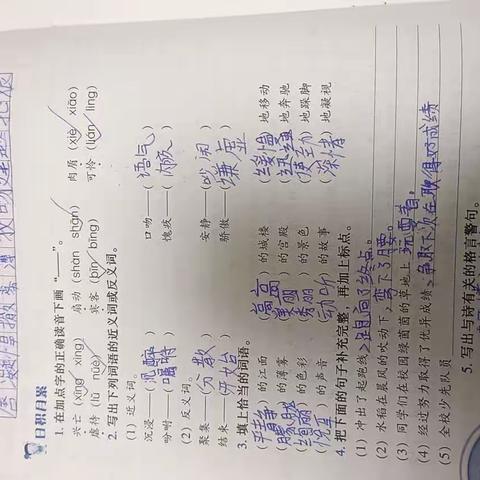 日积月累
1. 在加点字的正确读音下画“——”。
兴亡(xīng xìng) 扇动(shān shàn) 肉质(xiē xiāo)
虐待(lǜ nüè) 宾客(bīn bìng) 可怜(lián líng)
2. 写出下列词语的近义词或反义词。
(1) 近义词。
沉浸——(沉醉) 口吻——(语气)
吩咐——(嘱咐) 愧疚——(内疚)
(2) 反义词。
聚集——(分散) 安静——(吵闹)
结束——(开始) 骄傲——(谦虚)
3. 填上恰当的词语。
(平静)的江面 (高高)的城楼 (缓慢)地移动
(朦胧)的薄雾 (美丽)的宫殿 地奔驰
(绚丽)的色彩 (秀丽)的景色 地跺脚
的声音 (动听)的故事 (深情)地凝视
4. 把下面的句子补充完整,再加上标点。
(1) 冲出了起跑线,跑向了终点。
(2) 水稻在晨风的吹动下,弯下了腰。
(3) 同学们在校园绿茵茵的草地上玩耍着。
(4) 经过努力取得了优异成绩,争取下次在取得好成绩
(5) 全校少先队员
5. 写出与诗有关的格言警句。